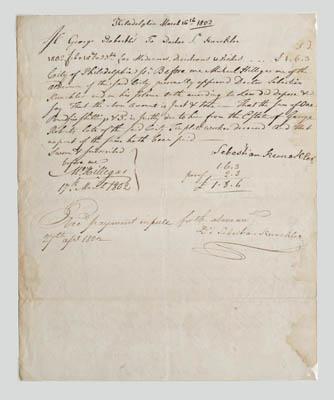 Philadelphia March 16th 1802
George Roberts To Doctor S. Kunckler
1802 for Medicines, Attendance & visits ... £ 1.6.3
City of Philadelphia ss. Before me Michael Hillegas one of the
Aldermen of the said City personally appeared Doctor Sebastian
Kunckler and on his solemn Oath according to Law did depose and
say That the above account is just & true That the sum of One
Pound six shillings & 3 is justly due to him from the Estate of George
Roberts late of the said City deceased and that
no part of the same hath been paid
Sworn & subscribed
before me
Sebastian Kunckler
M. Hillegas
17th March 1802
1.6.3
2.3
£ 1.8.6
Recd payment in full for the above acct
17th apl 1802
Dr Sebastian Kunckler